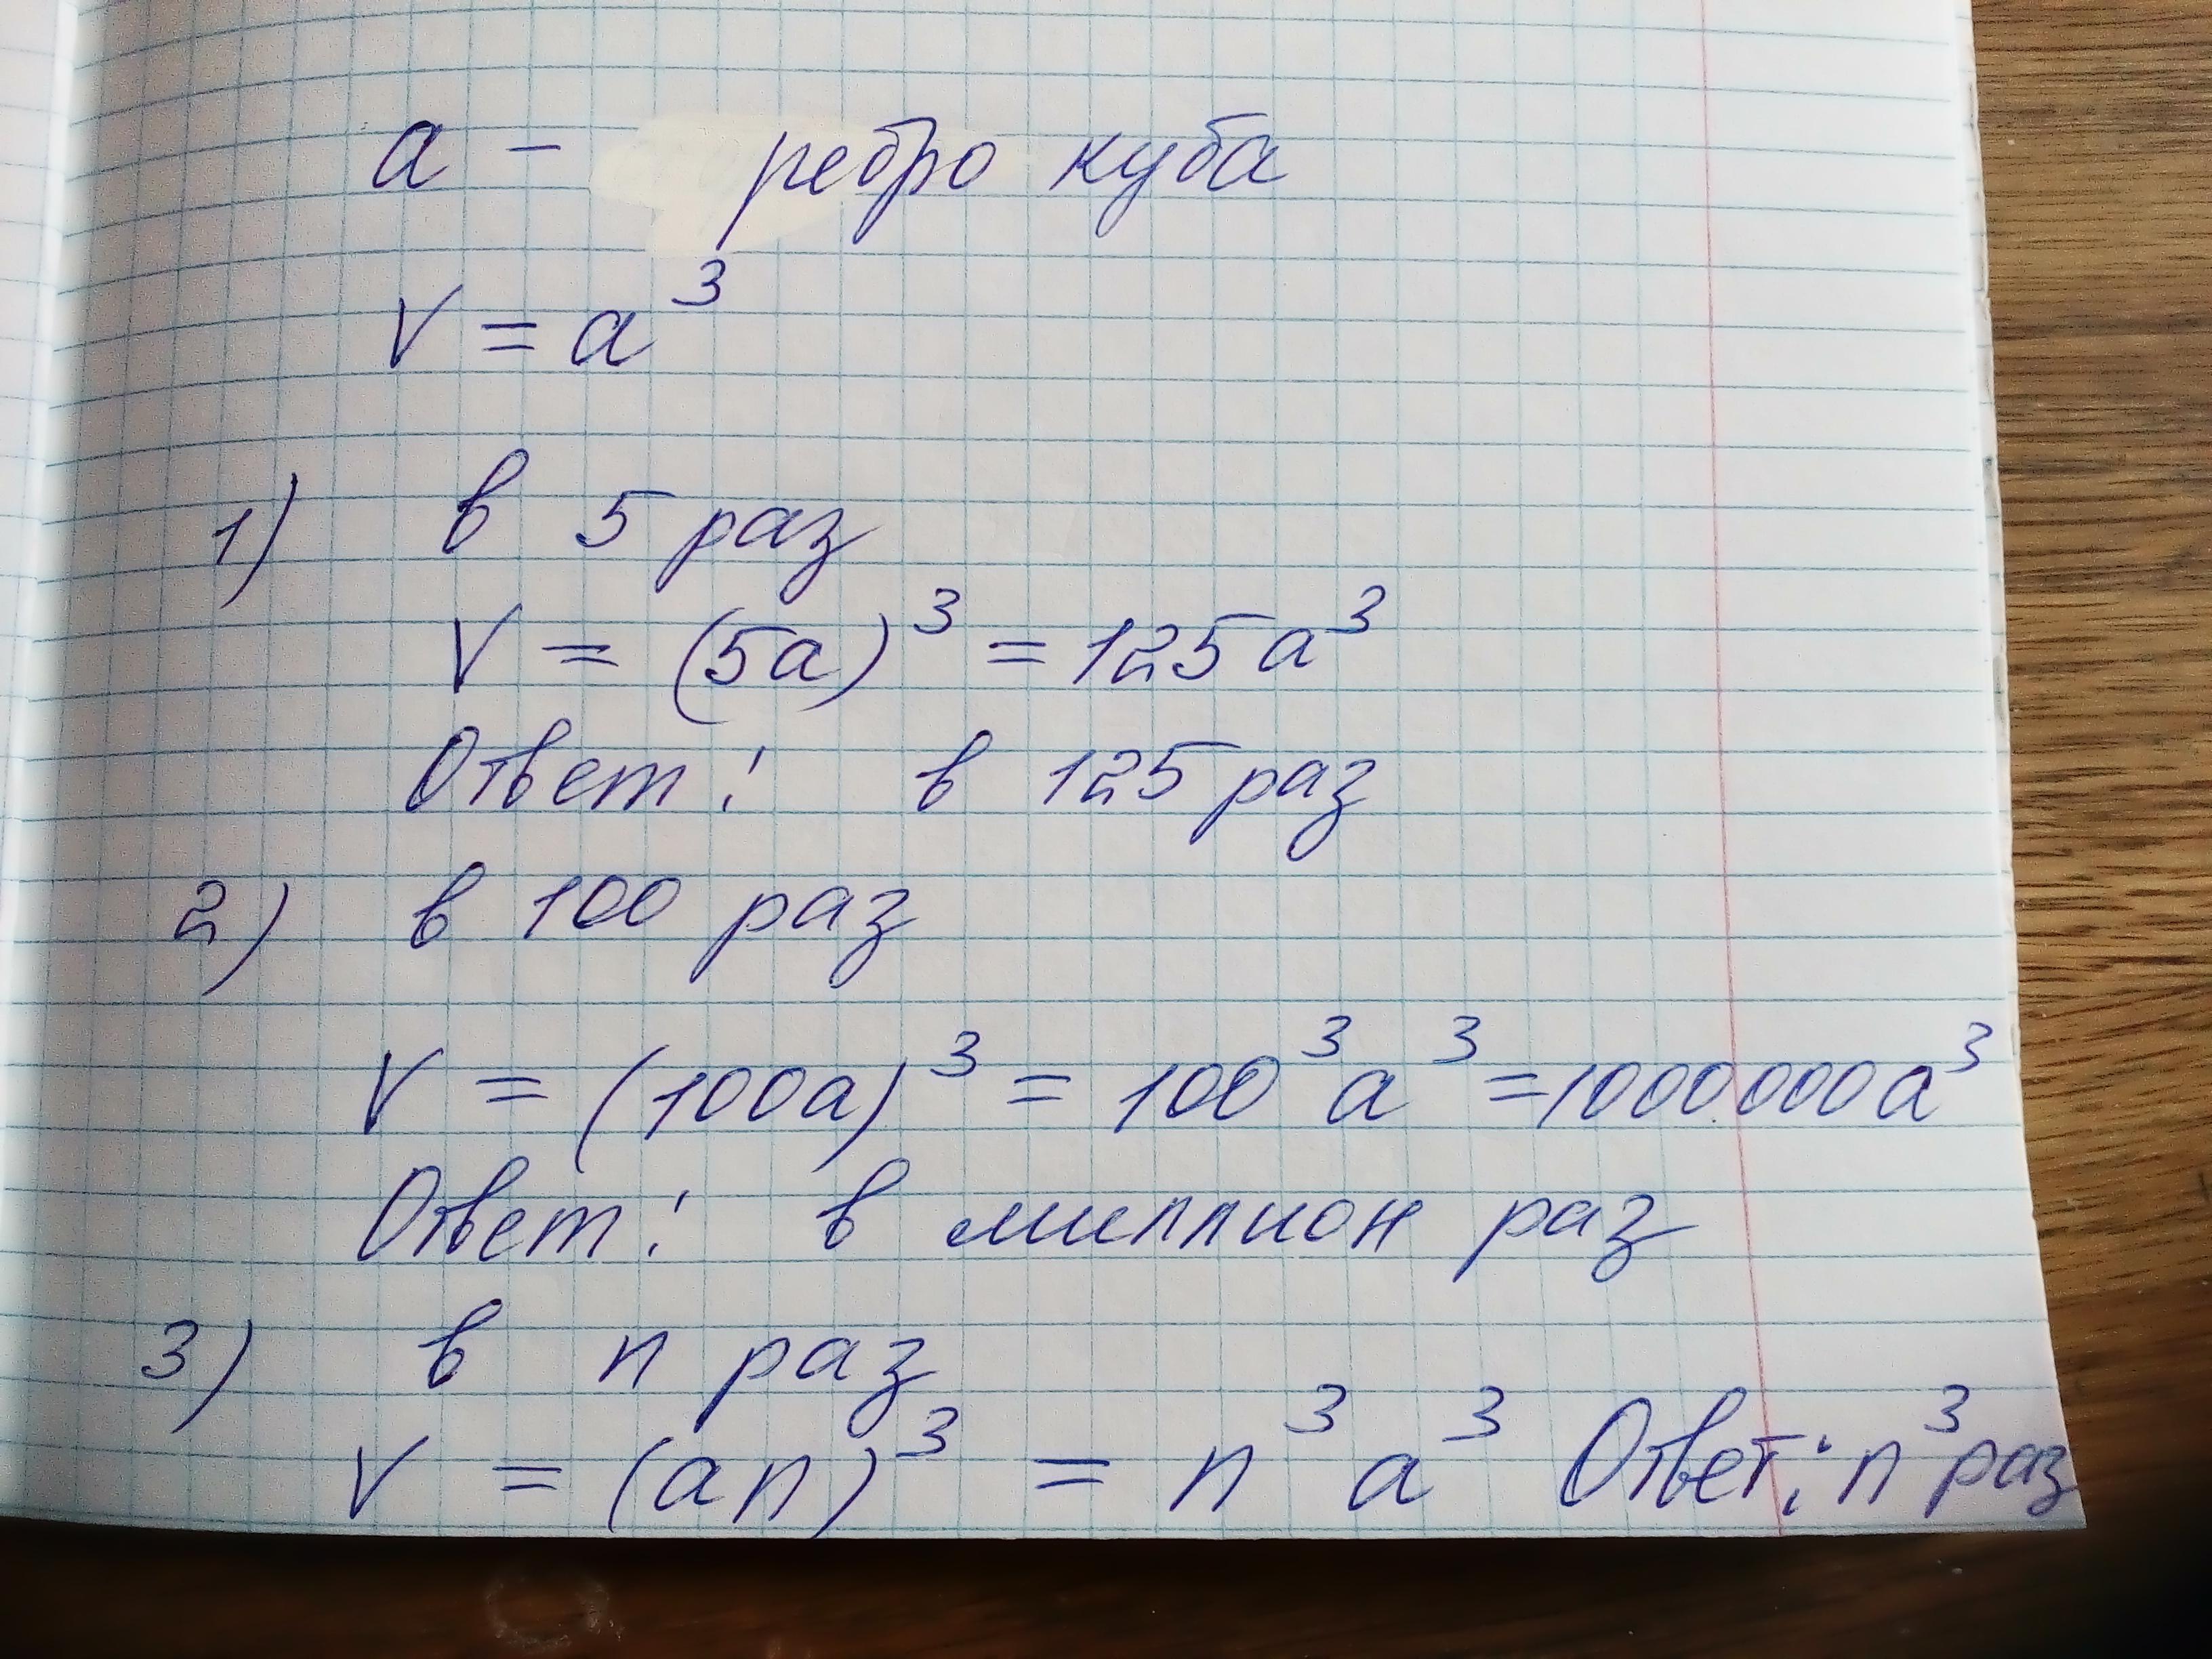 a - ребро куба
V = a³
1) в 5 раз
V = (5a)³ = 125a³
Ответ: в 125 раз
2) в 100 раз
V = (100a)³ = 100³a³ = 1000000a³
Ответ: в миллион раз
3) в n раз
V = (an)³ = n³a³ Ответ: n³ раз